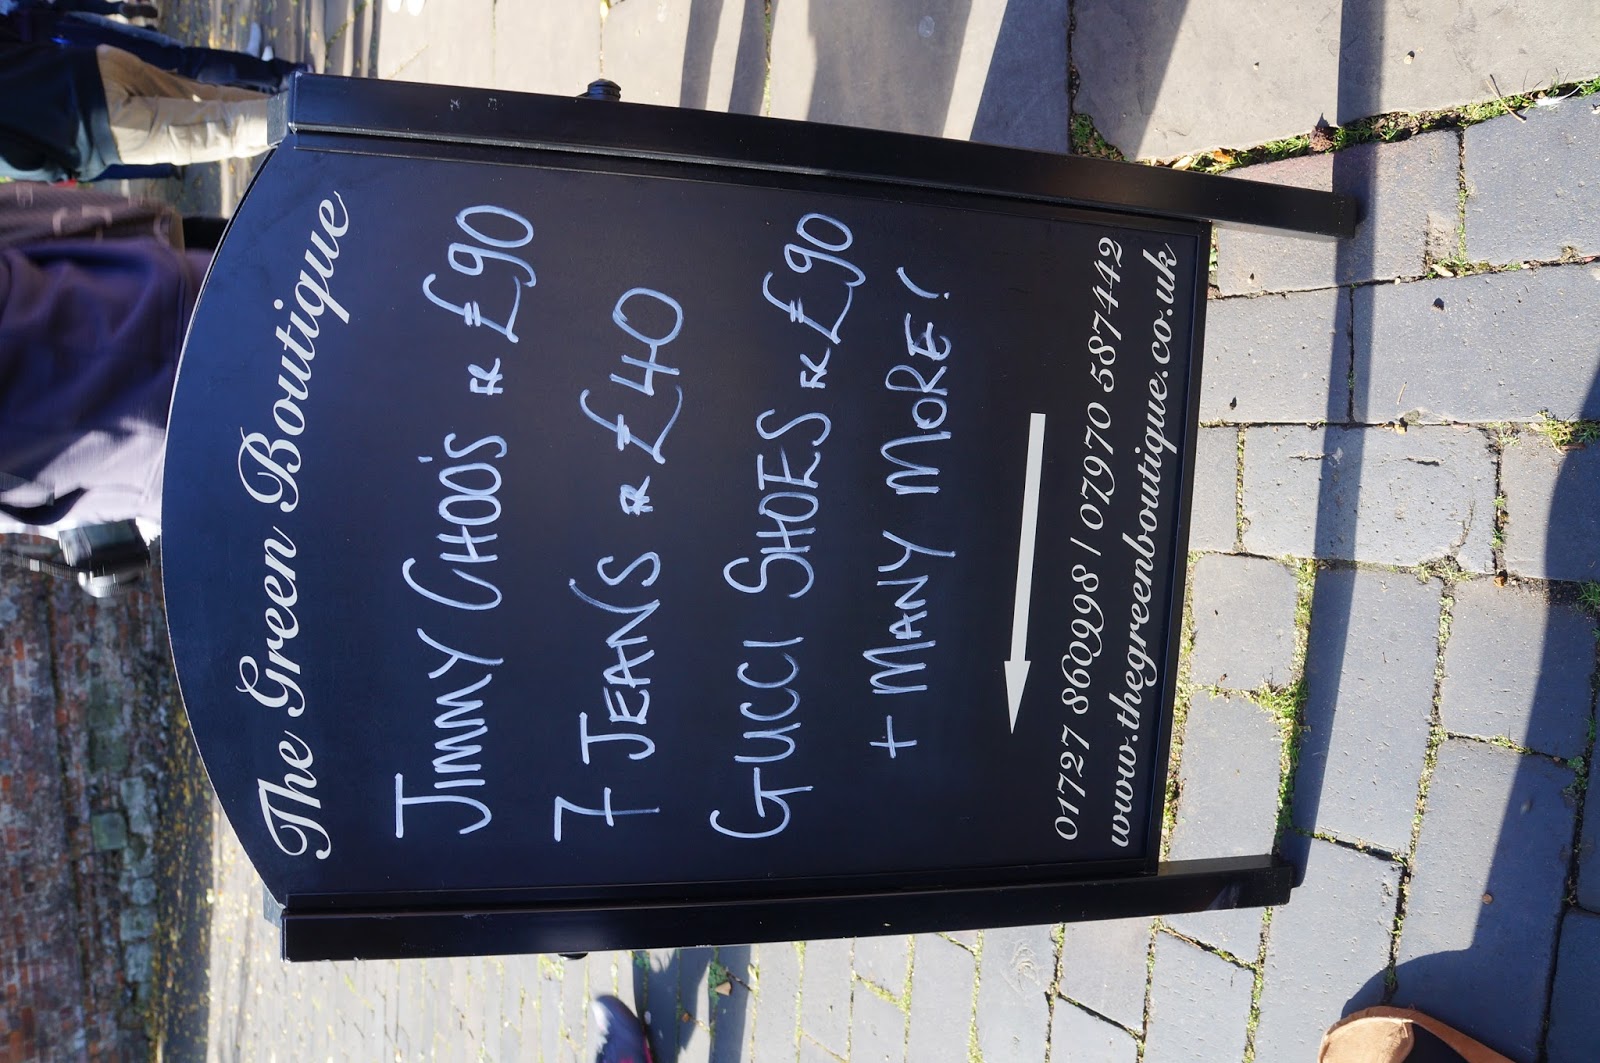 The Green Boutique
JIMMY CHOO'S FR £90
7 JEANS FR £40
GUCCI SHOES FR £90
+ MANY MORE!
01727 860998 / 07970 587442
www.thegreenboutique.co.uk